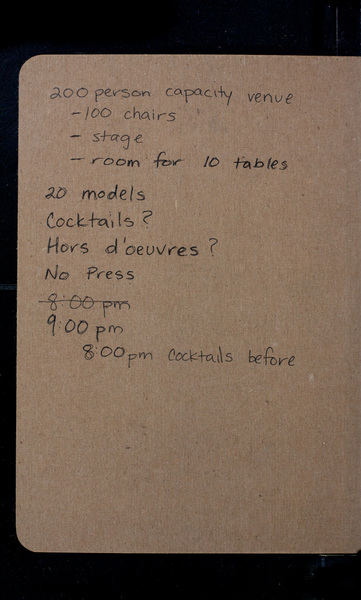 200 person capacity venue
-100 chairs
- stage
- room for 10 tables
20 models
Cocktails?
Hors d'oeuvres?
No Press
8:00 pm
9:00 pm
8:00pm Cocktails before